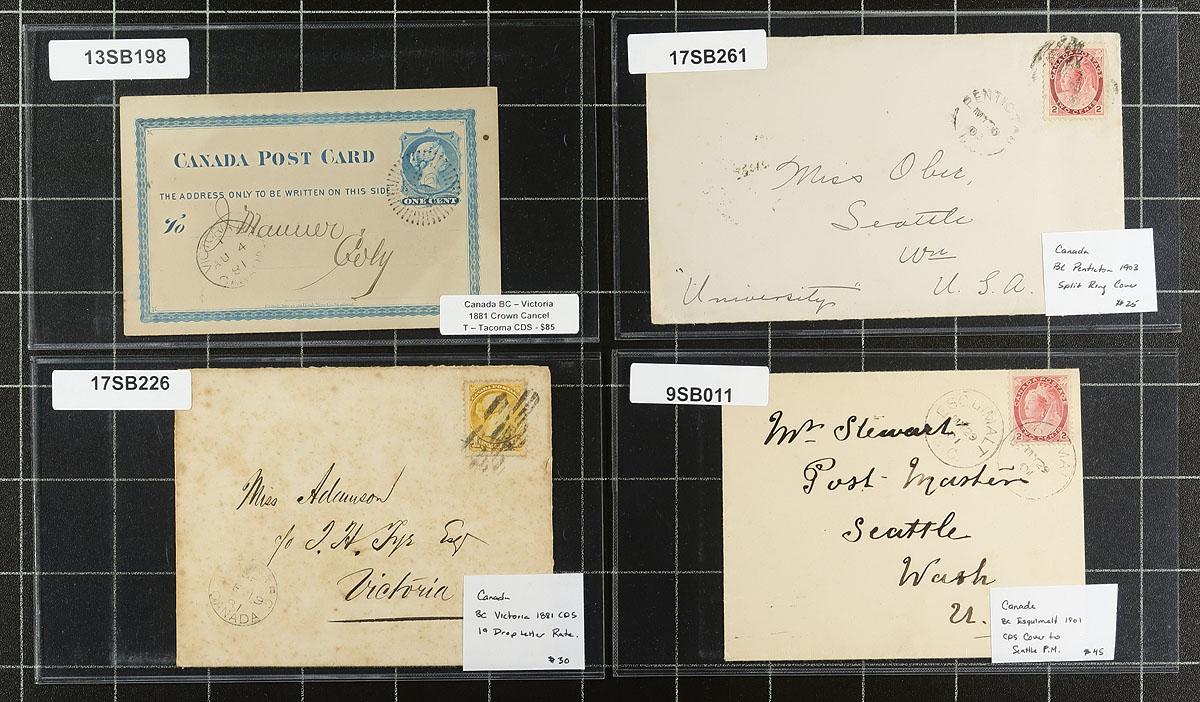 13SB198
CANADA POST CARD
THE ADDRESS ONLY TO BE WRITTEN ON THIS SIDE
To
ONE CENT
VICTORIA
AU 4
81
CANADA
Canada BC – Victoria
1881 Crown Cancel
T – Tacoma CDS - $85
17SB261
CANADA POSTAGE
2 2
TWO CENTS
PENTICTON
MY 6
03
Miss Ober,
Seattle
Wn
"University" U. S. A.
Canada
BC Penticton 1903
Split Ring Cover
$25
17SB226
Miss Adamson
c/o
Esq
Victoria
CANADA
Canada
BC Victoria 1881 CDS
1¢ Drop Letter Rate.
$30
9SB011
CANADA POSTAGE
2 2
ESQUIMALT
Mr Stewart
Post-Master
Seattle
Wash
U.
Canada
BC Esquimalt 1901
CDS Cover to
Seattle P.M. $45